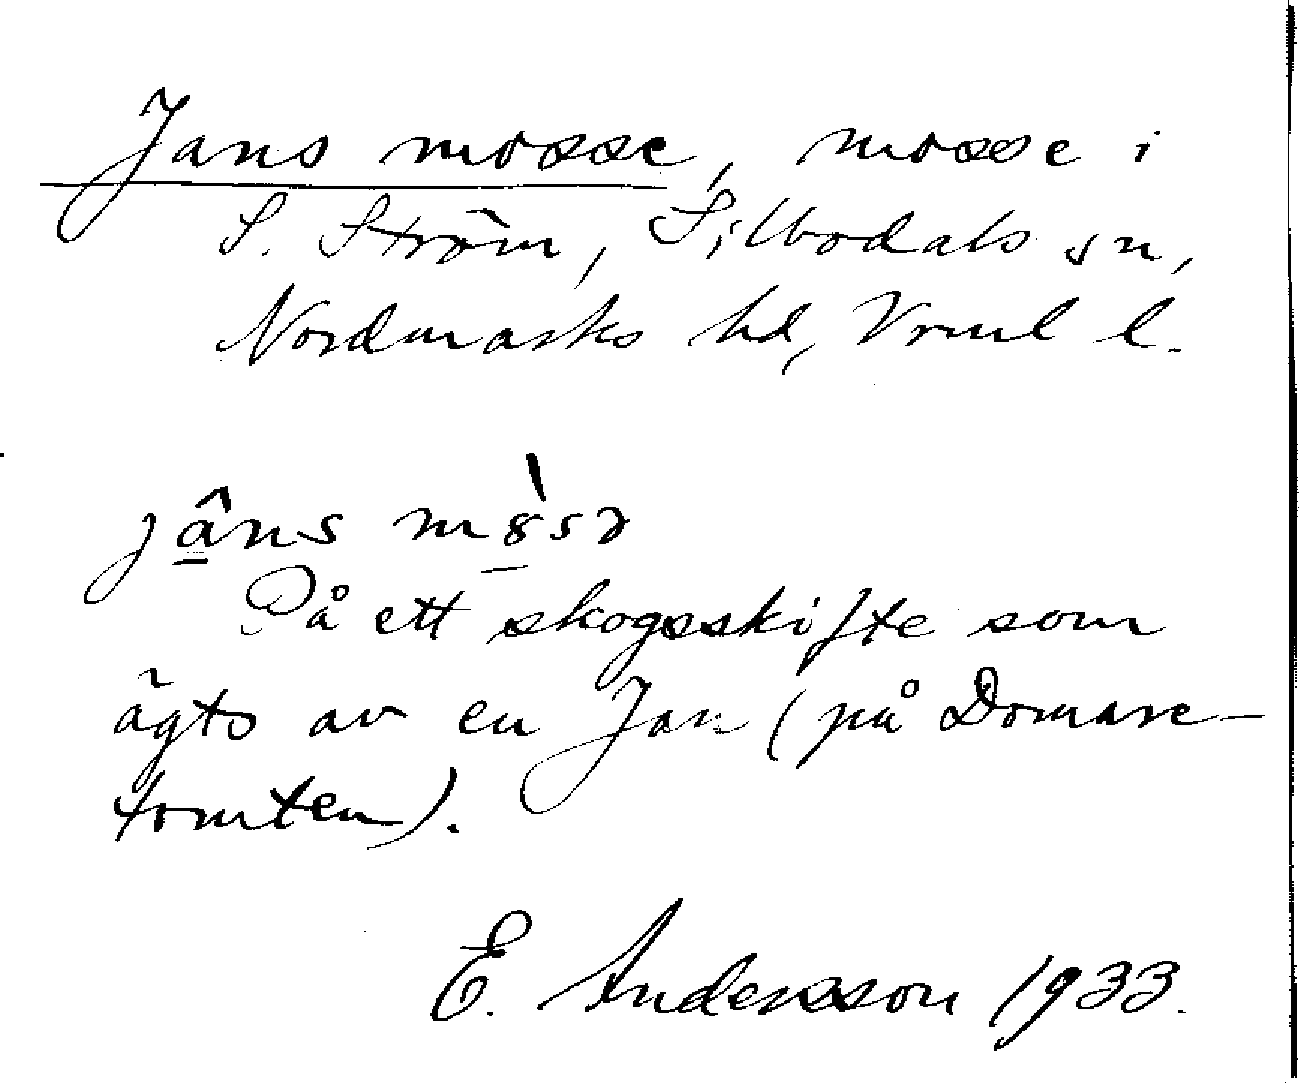 Jans mosse, mosse i
S. Ström, Silbodals sn,
Nordmarks hd, Vrml l.
jâ̱ns mȣ̱̀sə
På ett skogsskifte som
ägts av en Jan (på Domare-
tomten).
E. Andersson 1933.